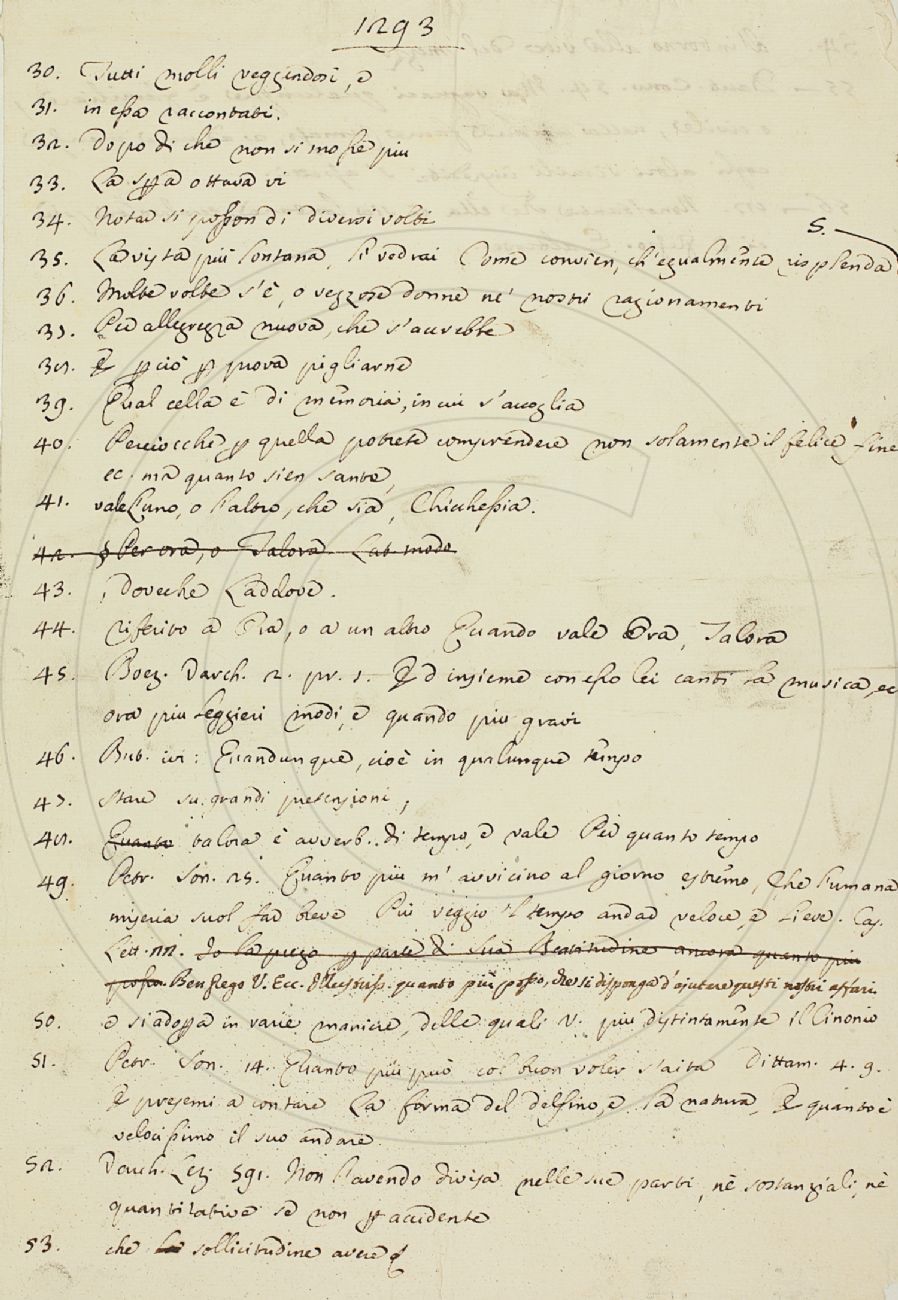 1293
30. Tutti molli veggendosi, e
31. in essa raccontati.
32. Dopo di che non si mosse piu
33. La spa ottava vi
34. Nota si posson di diversi volti
S.
35. La vista più lontana, li vedrai Come convien, ch'egualmente risplenda
36. Molte volte s'è, o vezzose donne ne' nostri ragionamenti
37. Per allegrezza nuova, che s'accrebbe
38. E pciò p prova pigliarne
39. Qual cella è di memoria, in cui s'accoglia
40. Perciocchè p quella potrete comprendere non solamente il felice fine
ec. ma quanto sien sante,
41. vale l'uno, o l'altro, che sia, Chicchessia.
42. Per ora, o Talora Lat. modo
43. , Doveche Laddove.
44. riferito a Ora, o a un altro Quando vale Ora, Talora
45. Boez. Varch. 2. pr. 1. E d insieme con esso lei canti la musica, ec
ora piu leggieri modi, e quando piu gravi
46. But. ivi: Quandunque, cioè in qualunque tempo
47. stare su grandi pretensioni,
48. Quanto talora è avverb. di tempo, e vale Per quanto tempo
49. Petr. Son. 25. Quanto più m'avvicino al giorno estremo, Che l'umana
miseria suol far breve Più veggio 'l tempo andar veloce, e lieve. Cas.
Lett. 22. Io la prego p parte di Sua Beatitudine ancora quanto piu
posso. Ben prego V. Ecc. Illustriss. quanto più posso, che si disponga d'ajutare questi nostri affari
50. e si adopra in varie maniere, delle quali V. piu distintamente il Cinonio
51. Petr. Son. 14. Quanto più può col buon voler s'aita Dittam. 4. 9.
E presemi a contare La forma del delfino, e la natura, E quanto è
velocissimo il suo andare.
52. Varch. Lez. 591. Non l'avendo divisa nelle sue parti, nè sostanziali, nè
quantitative se non p accidente
53. che sollicitudine avere